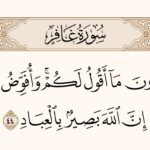 سُورَةُ غَافِرٍ
ونَ مَآ أَقُولُ لَكُمْ ۚ وَأُفَوِّضُ
إِنَّ ٱللَّهَ بَصِيرٌۢ بِٱلْعِبَادِ ٤٤